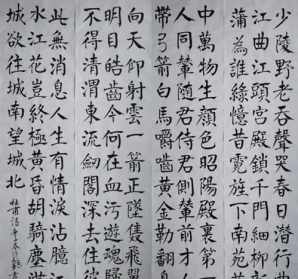 少陵野老吞聲哭春日潛
江曲江頭宮殿鎖千門細柳
蒲為誰綠憶昔霓旌下南苑
中萬物生顏色昭陽殿裏第
人同輦隨君侍君側輦前才人
帶弓箭白馬嚼齧黃金勒翻身
向天仰射雲一箭正墜雙飛翼
明目皓齒今何在血污遊魂歸
不得清渭東流劍閣深去住彼
此無消息人生有情淚沾臆江
水江花豈終極黃昏胡騎塵滿
城欲往城南望城北